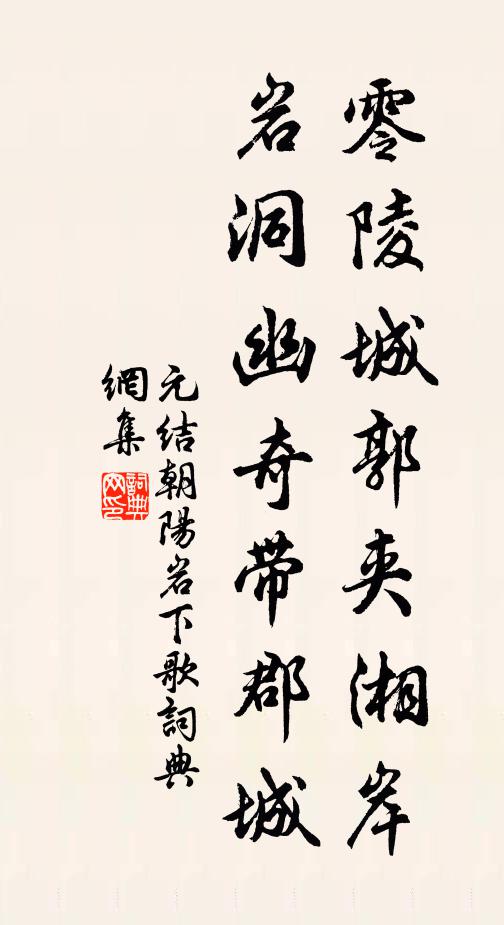 零陵城郭夾湘岸
岩洞幽奇带郡城
元结朝陽岩下歌詞典
網集
詞典
网印